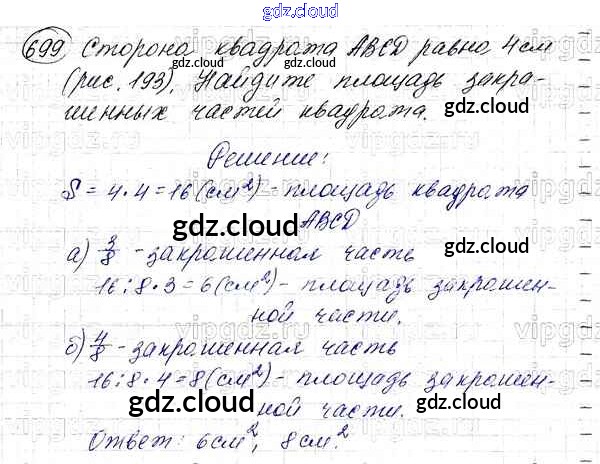 gdz.cloud
699 Сторона квадрата ABCD равна 4 см
(рис. 193). Найдите площадь закра-
шенных частей квадрата.
gdz.cloud gdz.cloud
Решение:
S = 4 · 4 = 16 (см²) - площадь квадрата
ABCD
gdz.cloud
а) 3/8 - закрашенная часть
16 : 8 · 3 = 6 (см²) - площадь закрашен-
ной части.
gdz.cloud
б) 4/8 - закрашенная часть
16 : 8 · 4 = 8 (см²) - площадь закрашен-
ной части.
gdz.cloud gdz.cloud
Ответ: 6 см², 8 см².
gdz.cloud